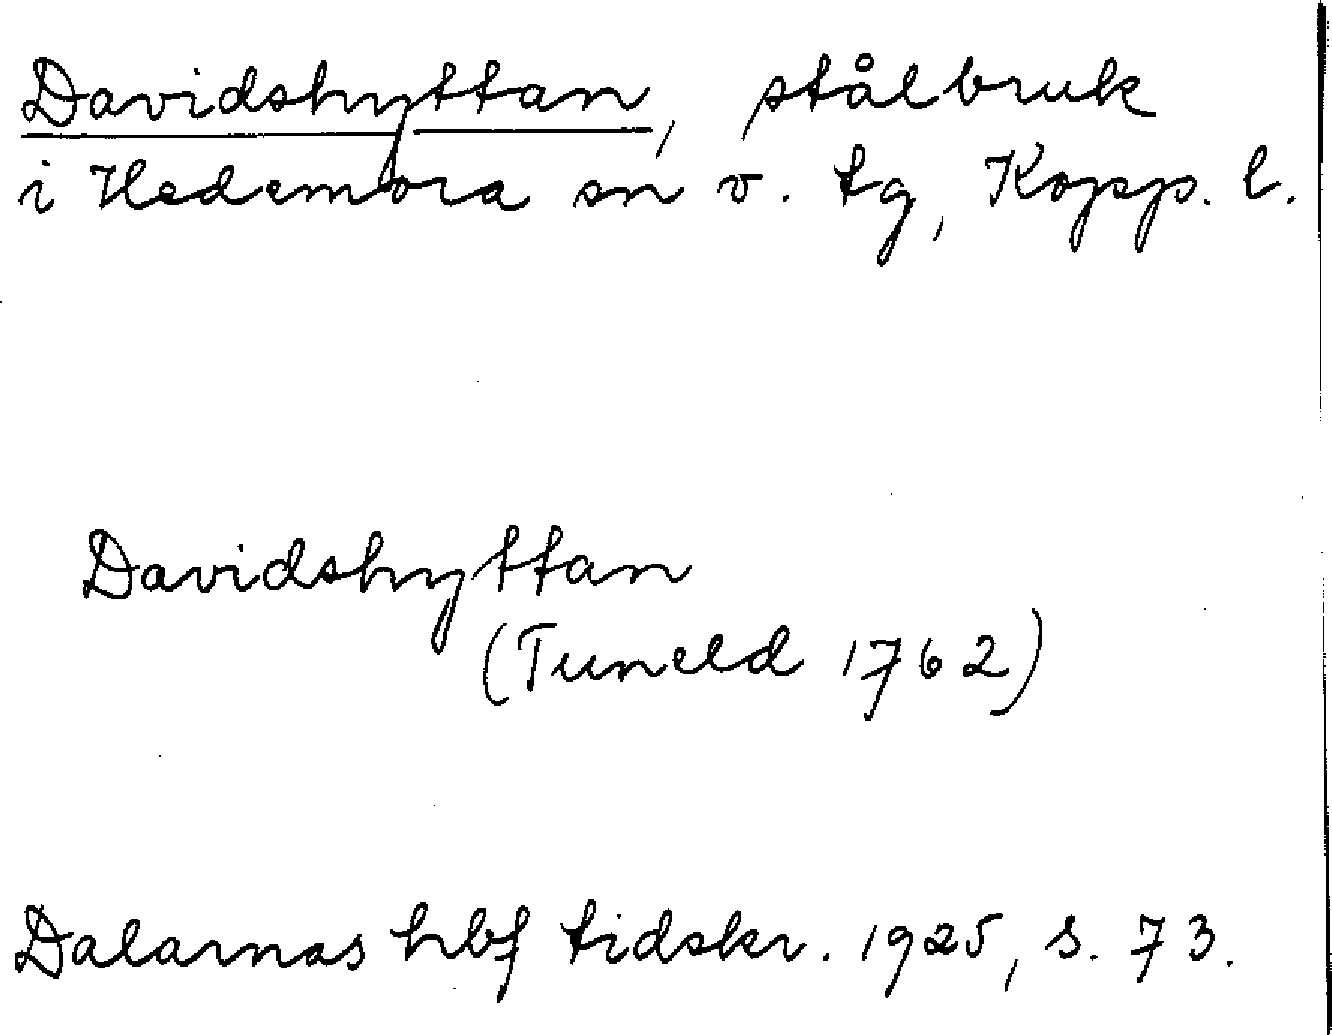 Davidshyttan, stålbruk
i Hedemora sn v. tg, Kopp. l.
Davidshyttan
(Tuneld 1762)
Dalarnas hbf tidskr. 1925, s. 73.